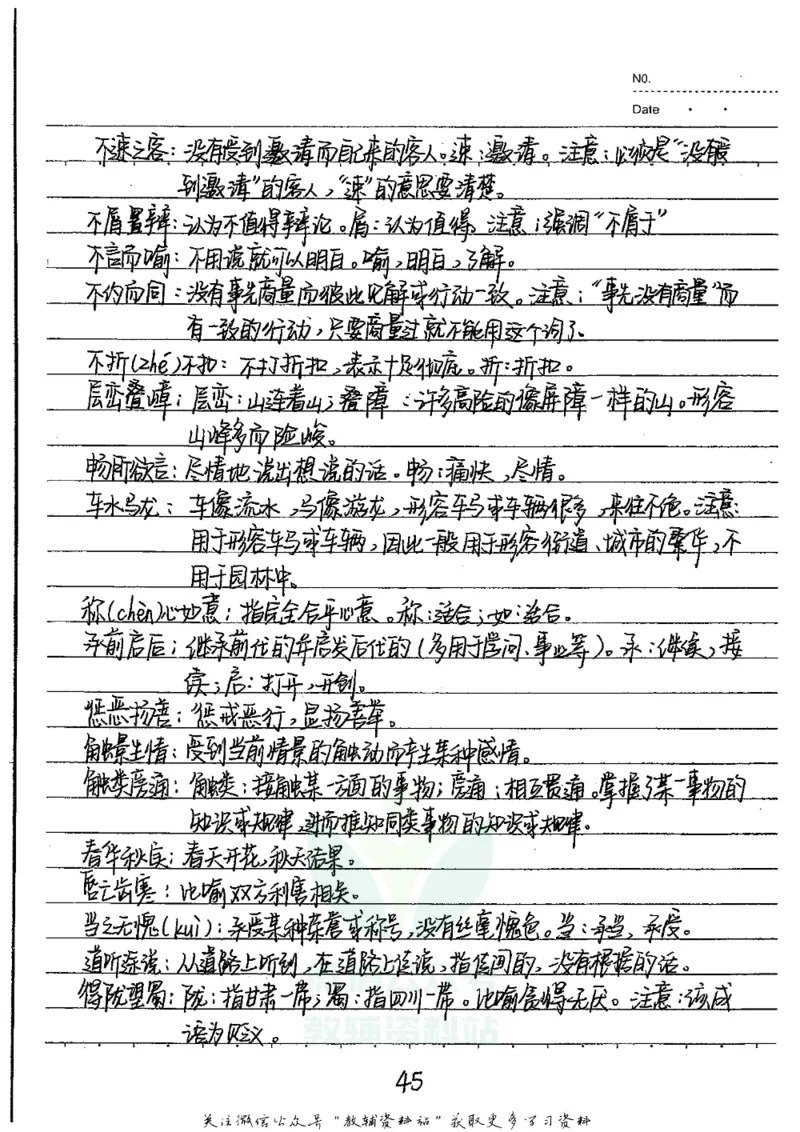 NO.
Date
不速之客：没有受到邀请而自己来的客人。速：邀请。注意：必须是“没有受
到邀请”的客人，“速”的意思要清楚。
不屑置辩：认为不值得辩论。屑：认为值得。注意：强调“不屑于”
不言而喻：不用说就可以明白。喻，明白，了解。
不约而同：没有事先商量而彼此见解或行动一致。注意：“事先没有商量”而
有一致的行动，只要商量过就不能用这个词了。
不折(zhé)不扣：不打折扣，表示十足彻底。折：折扣。
层峦叠嶂：层峦：山连着山；叠障：许多高险的像屏障一样的山。形容
山峰多而险峻。
畅所欲言：尽情地说出想说的话。畅：痛快，尽情。
车水马龙：车像流水，马像游龙，形容车马或车辆很多，来往不绝。注意：
用于形容车马或车辆，因此一般用于形容街道、城市的繁华，不
用于园林中。
称(chèn)心如意：指完全合乎心意。称：适合；如：适合。
承前启后：继承前代的并启发后代的(多用于学问、事业等)。承：继续，接
续；启：打开，开创。
惩恶扬善：惩戒恶行，显扬善举。
触景生情：受到当前情景的触动而产生某种感情。
触类旁通：触类：接触某一方面的事物；旁通：相互贯通。掌握了某一事物的
知识或规律，进而推知同类事物的知识或规律。
春华秋实：春天开花，秋天结果。
唇亡齿寒：比喻双方利害相关。
当之无愧(kuì)：承受某种荣誉或称号，没有丝毫愧色。当：承当，承受。
道听途说：从道路上听到，在道路上传说，指传闻的，没有根据的话。
得陇望蜀：陇：指甘肃一带；蜀：指四川一带。比喻贪得无厌。注意：该成
语为贬义。
教辅资料站
45
关注微信公众号“教辅资料站”获取更多学习资料